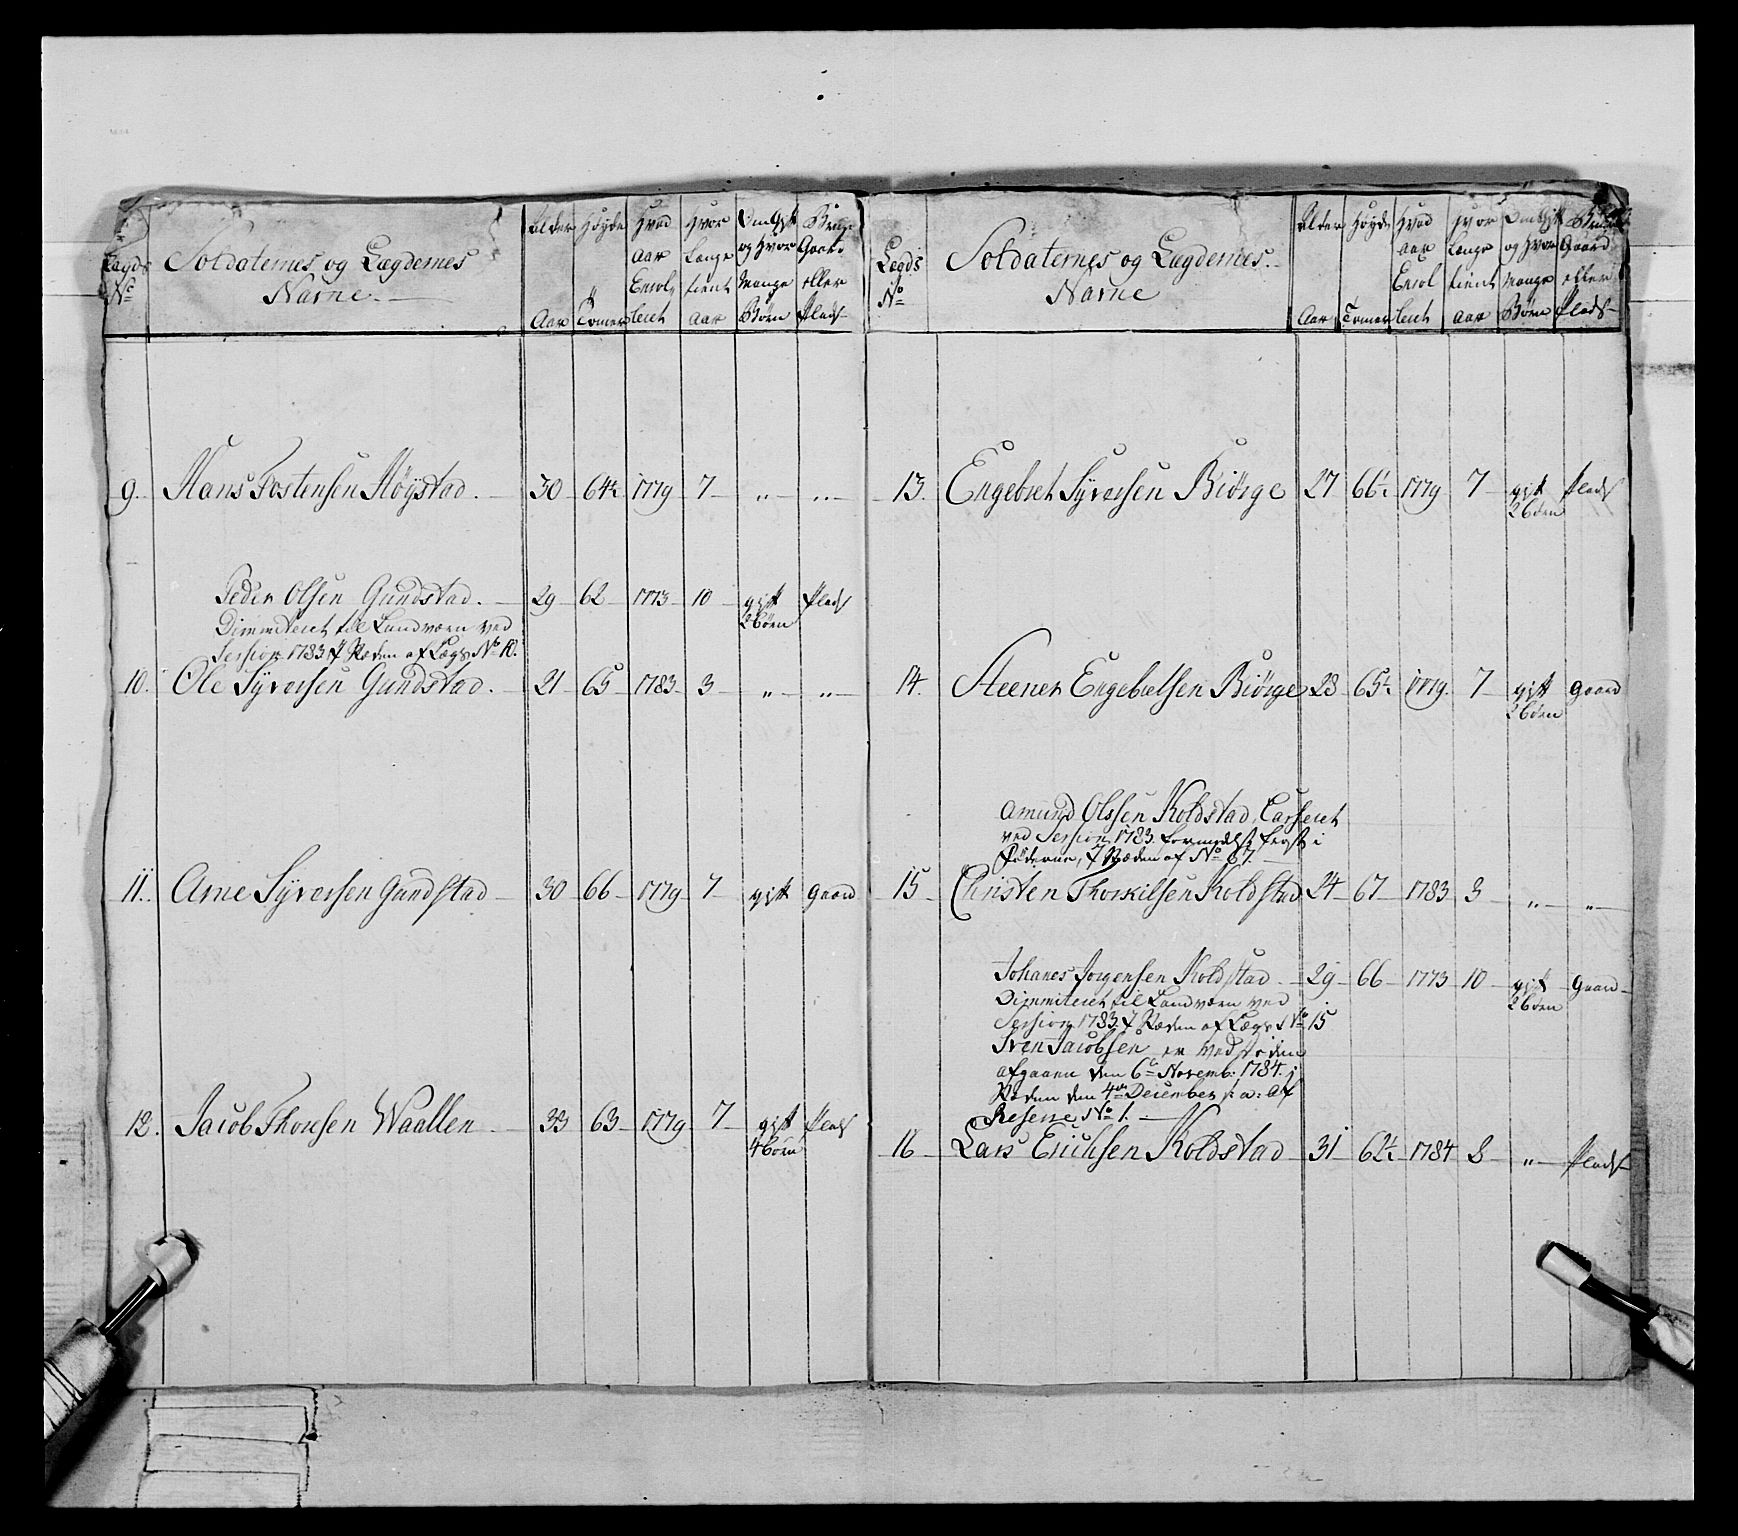 Legds No Soldaternes og Lægdernes Navne. Alder Aar Høyde Tomer Hvad Aar Enrolleret Hvor Lenge tient Aar Om Gift og Hvor Mange Børn Bruger Gaard eller Plads
9. Hans Tostensen Høystad. 30 64½ 1779 7 " "
Peder Olsen Gundstad. 29 62 1773 10 gift Plads
2 børn
Dimmiteret til Landværn ved
Session 1783 IRæden af Lægs No 10.
10. Ole Syversen Gundstad. 21 65 1783 3 " "
11. Arne Syversen Gundstad 30 66 1779 7 gift Gaard
12. Jacob Thoresen Waallen 33 63 1779 7 gift Plads
4 børn
Legds No Soldaternes og Lægdernes Navne Alder Aar Høyde Tomer Hvad Aar Enrolleret Hvor Lenge tient Aar Om Gift og Hvor Mange Børn Bruger Gaard eller Plads
13. Engebret Syversen Biørge 27 66½ 1779 7 gift Plads
2 børn
14. Steener Engebretsen Biørge 28 65½ 1779. 7 gift Gaard
2 børn
Amund Olssen Koldstad, Casseret
ved Session 1783 formedelst frost i
Føderne, I Ræden af No 67.
15 Christen Thorkilsen Koldstad 24 67 1783 3 " "
Johanes Jorgensen Koldstad 29 66 1773 10 gift Gaard
2 børn
Dimmiteret til Landværn ved
Session 1783 I Ræden af Lægs No 15
Sven Jacobsen er ved døden
afgaaen den 6te Novemb: 1784. i
Ræden den 4de December s: a: af
Reserve No 1.
16 Lars Erichsen Koldstad 31 62½ 1784 2 " Plads